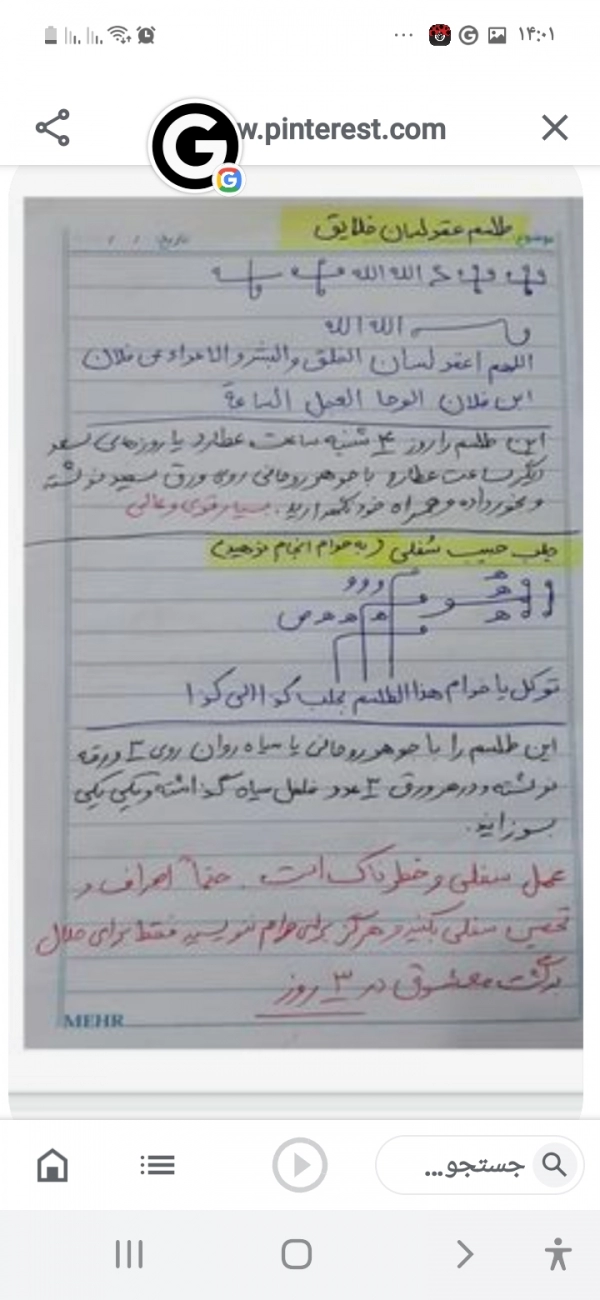 ۱۴:۰۱
w.pinterest.com
موضوع طلسم عقد لسان خلایق
تاریخ / /
الله الله
الله الله
اللهم اعقد لسان الخلق والبشر و الاعداء عن فلان
ابن فلان الوحا العجل الساعة
این طلسم را روز ۴ شنبه ساعت عطارد یا روزهای سعد
دیگر ساعت عطارد با جوهر روحانی روی ورق سفید نوشته
و بخور داده و همراه خود نگهدارید. بسیار قوی و عالی
جلب حبیب سُفلی (به حرام انجام ندهید)
و و و
توکل یا خدام هذا الطلسم بجلب کذا الی کذا
این طلسم را با جوهر روحانی یا سیاه روان روی ورقه
نوشته و در هر ورق عدد فلفل سیاه گذاشته و یکی یکی
بسوزانید.
عمل سفلی و خطرناک است. حتماً احراف و
تحصین سفلی بکنید و هرگز برای حرام ننویسید فقط برای حلال
برگشت معشوق در ۳ روز
MEHR
جستجو...